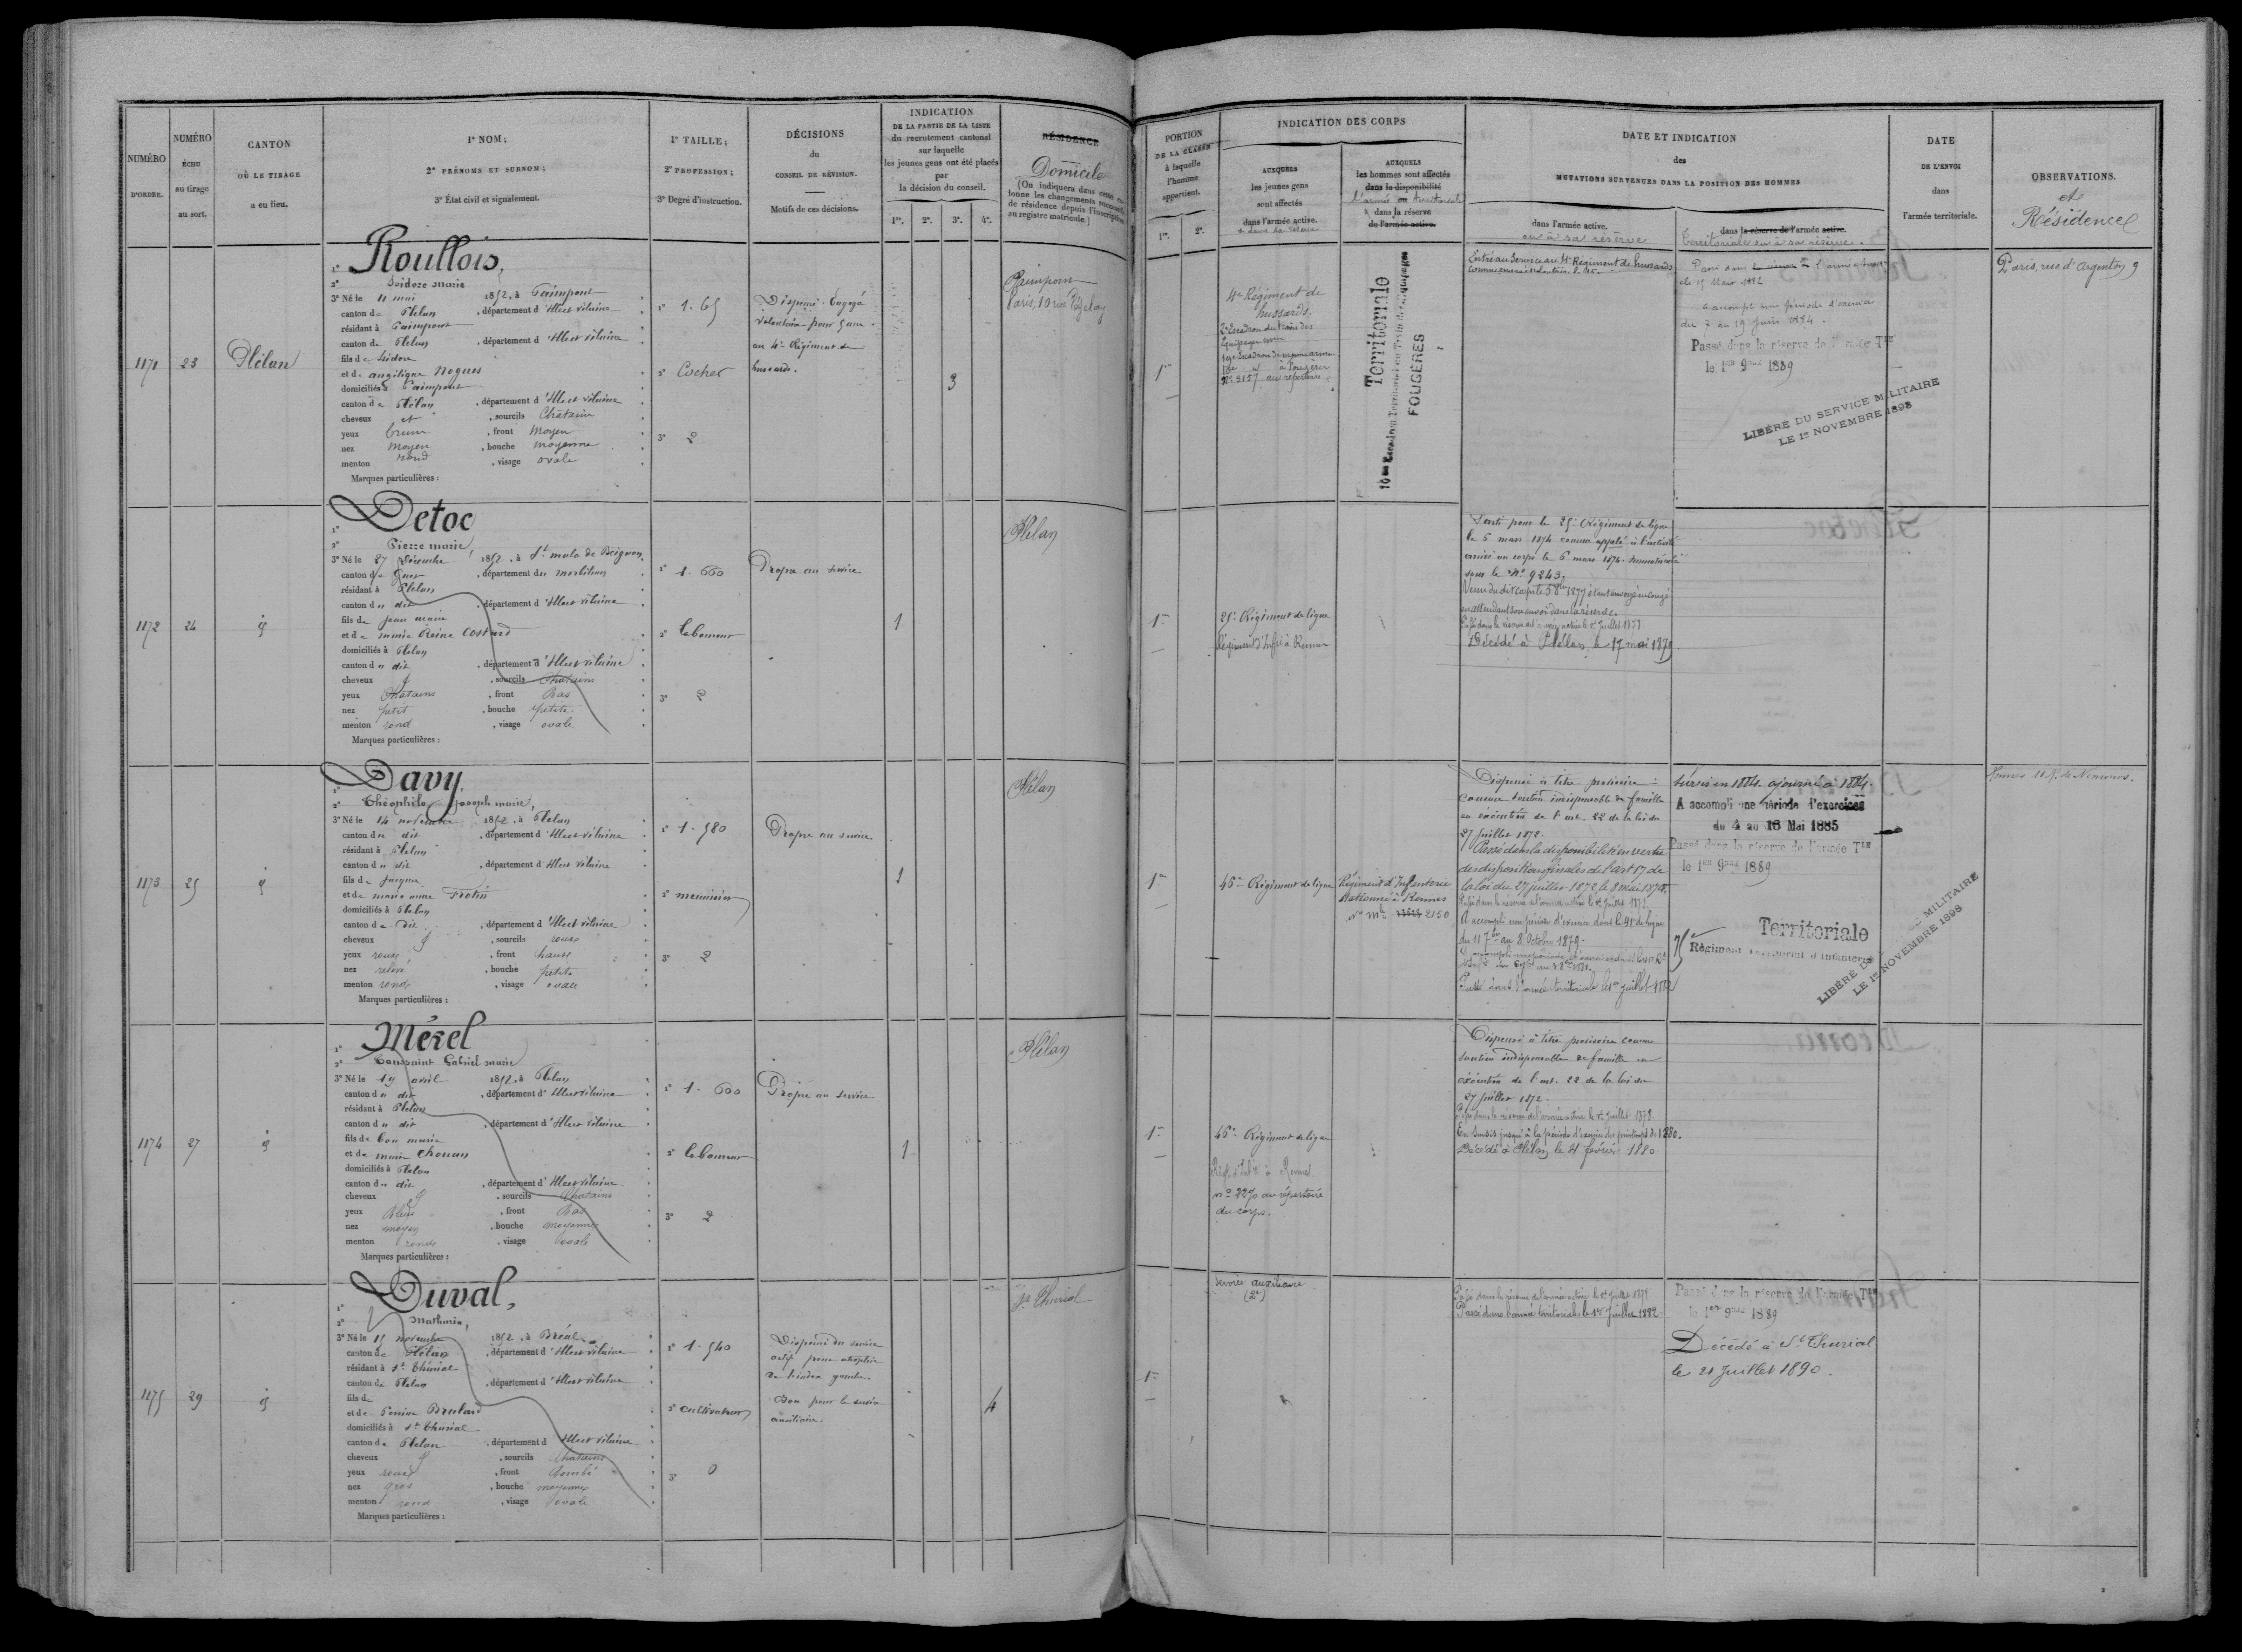 NUMÉRO
D'ORDRE.
NUMÉRO
ÉCHU
au tirage
au sort.
CANTON
OÙ LE TIRAGE
a eu lieu.
1° NOM;
2° PRÉNOMS ET SURNOM;
3° État civil et signalement.
1° TAILLE;
2° PROFESSION;
3° Degré d'instruction.
DÉCISIONS
du
CONSEIL DE RÉVISION.
Motifs de ces décisions.
INDICATION
DE LA PARTIE DE LA LISTE
du recrutement cantonal
sur laquelle
les jeunes gens ont été placés
par
la décision du conseil.
1re. 2e. 3e. 4e.
RÉSIDENCE
Domicile
(On indiquera dans cette co-
lonne les changements successifs
de résidence depuis l'inscription
au registre matricule.)
PORTION
DE LA CLASSE
à laquelle
l'homme
appartient.
1re. 2e.
INDICATION DES CORPS
AUXQUELS
les jeunes gens
sont affectés
dans l'armée active.
AUXQUELS
les hommes sont affectés
dans la disponibilité
dans la réserve
de l'armée active.
DATE ET INDICATION
des
MUTATIONS SURVENUES DANS LA POSITION DES HOMMES
dans l'armée active.
ou à sa réserve
dans la réserve de l'armée active.
Territoriale ou à sa réserve.
DATE
DE L'ENVOI
dans
l'armée territoriale.
OBSERVATIONS.
et
Résidence
1171
23
Plélan
Roullois,
Isidore Marie
3° Né le 11 mai 1852, à Paimpont
canton de Plélan, département d'Ille et vilaine
résidant à Paimpont
canton de Plélan, département d'Ille et vilaine
fils de Isidore
et de angélique Nogues
domiciliés à Paimpont
canton de Plélan, département d'Ille et vilaine
cheveux et, sourcils Châtains
yeux bruns, front moyen
nez moyen, bouche moyenne
menton rond, visage ovale
Marques particulières :
1° 1.65
2° Cocher
3° 2
Dispensé. Engagé
volontaire pour 5 ans
au 4e Régiment de
hussards.
3
Paimpont
1re
4e Régiment de
hussards.
Territoriale
FOUGÈRES
Entré au Service au 4e Régiment de hussards
a accompli une période d'exercice
du 7 au 19 Juin 1884.
Passé dans la réserve de l'armée Tle
le 1er 9bre 1889
LIBÉRÉ DU SERVICE MILITAIRE
LE 1er NOVEMBRE 1898
Paris, rue d'Argenton 9
1172
24
Detoc
Pierre marie,
3° Né le 27 Décembre 1852, à St malo de Beignon
canton de Guer, département du morbihan
résidant à Plélan
canton du dit, département d'Ille et vilaine
fils de jean marie
et de marie Reine Costard
domiciliés à Plélan
canton du dit, département d'Ille et vilaine
cheveux, sourcils Chatains
yeux Chatains, front bas
nez petit, bouche petite
menton rond, visage ovale
Marques particulières :
1° 1.660
2° laboureur
3° 2
Propre au service
1
Plélan
1re
25e Régiment de ligne
Régiment d'Infrie à Rennes
Parti pour le 25e Régiment de ligne
le 6 mars 1874 comme appelé à l'activité
arrivé au corps le 6 mars 1874. Immatriculé
sous le No 9243.
en attendant son envoi dans la réserve.
Passé dans la réserve de l'armée active le 1er Juillet 1879
Décédé à Plélan, le 17 mai 1879
1173
25
Davy,
Théophile Joseph marie,
3° Né le 14 novembre 1852, à Plélan
canton du dit, département d'Ille et vilaine
résidant à Plélan
canton du dit, département d'Ille et vilaine
fils de Jacques
et de marie anne Frotin
domiciliés à Plélan
canton du dit, département d'Ille et vilaine
cheveux, sourcils roux
yeux roux, front haut
nez relevé, bouche petite
menton rond, visage ovale
Marques particulières :
1° 1.580
2° menuisier
3° 2
Propre au service
1
Plélan
1re
46e Régiment de ligne
Régiment d'Infanterie
stationné à Rennes
2150
Dispensé à titre provisoire
comme soutien indispensable de famille
en exécution de l'art. 22 de la loi du
27 Juillet 1872.
Passé dans la disponibilité en vertu
des dispositions finales de l'art 17 de
la loi du 27 juillet 1872 le 8 mai 1875
Passé dans la réserve de l'armée active le 1er Juillet 1879
A accompli une période d'exercice dans le 41e de ligne
du 11 7bre au 8 Octobre 1879.
Passé dans l'armée territoriale le 1er Juillet 1882
Sursis en 1884. ajourné à 1885.
A accompli une période d'exercices
du 4 au 16 Mai 1885
Passé dans la réserve de l'armée Tle
le 1er 9bre 1889
Territoriale
75e Régiment territorial d'Infanterie
LIBÉRÉ DU SERVICE MILITAIRE
LE 1er NOVEMBRE 1898
1174
27
Mérel
Toussaint Gabriel marie
3° Né le 19 avril 1852, à Plélan
canton du dit, département d'Ille et vilaine
résidant à Plélan
canton du dit, département d'Ille et vilaine
et de marie Chouan
domiciliés à Plélan
canton du dit, département d'Ille et vilaine
cheveux, sourcils Chatains
yeux bleus, front bas
nez moyen, bouche moyenne
menton rond, visage ovale
Marques particulières :
1° 1.600
2° laboureur
3° 2
Propre au service
1
Plélan
1re
46e Régiment de ligne
Régt d'Infie à Rennes.
au répertoire
du corps.
Dispensé à titre provisoire comme
soutien indispensable de famille en
exécution de l'art. 22 de la loi du
27 Juillet 1872.
Passé dans la réserve de l'armée active le 1er Juillet 1879.
En sursis jusqu'à la période d'exercice du printemps de 1880.
Décédé à Plélan le 4 février 1880.
1175
29
Duval,
Mathurin,
3° Né le 15 novembre 1852, à Bréal
canton de Plélan, département d'Ille et vilaine
résidant à St Thurial
canton de Plélan, département d'Ille et vilaine
fils de
et de Perrine Brulard
domiciliés à St Thurial
canton de Plélan, département d'Ille et vilaine
cheveux, sourcils Chatains
yeux roux, front bombé
nez gros, bouche moyenne
menton rond, visage ovale
Marques particulières :
1° 1.540
2° cultivateur
3° 0
Dispensé du service
actif pour atrophie
de la jambe.
Bon pour le service
auxiliaire.
4
St Thurial
1re
service auxiliaire
Passé dans la réserve de l'armée active le 1er Juillet 1879
Passé dans l'armée territoriale, le 1er Juillet 1882
Passé dans la réserve de l'armée Tle
le 1er 9bre 1889
Décédé à St Thurial
le 21 Juillet 1890.